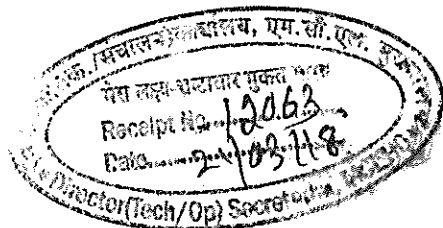 क./संचालन) कार्यालय, एम.सी.एल.
मेरा लक्ष्य-भ्रष्टाचार मुक्त भारत
Receipt No. 12063
Date 2/03/18
Director(Tech/Op)